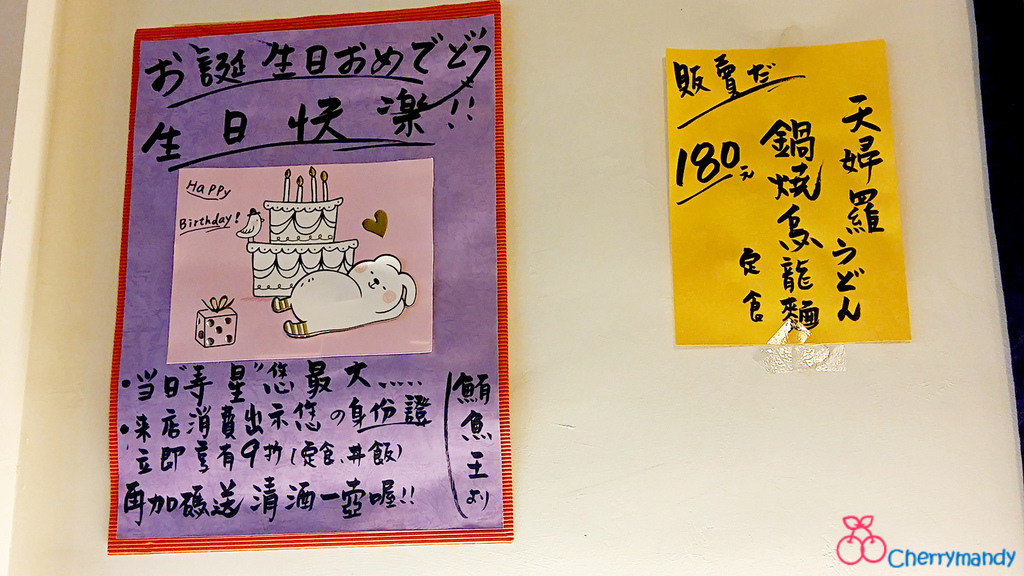 お誕生日おめでどう
生日快楽!!
Happy
Birthday!
・当日寿星"您最大.....
・来店消費出示您の身份證
立即享有9折(定食、丼飯)
再加碼送清酒一壺喔!!
鮪魚王より
販賣だ
180元
天婦羅うどん
鍋燒烏龍麵
定食
Cherrymandy